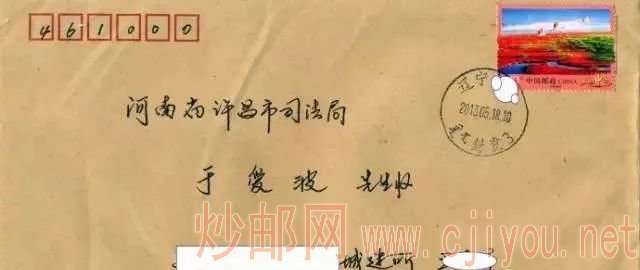 461000
中国邮政 CHINA
辽宁
2013.05.18.10
3
河南省许昌市司法局
于爱波 先生收
城建所
炒邮网 www.cjiyou.net